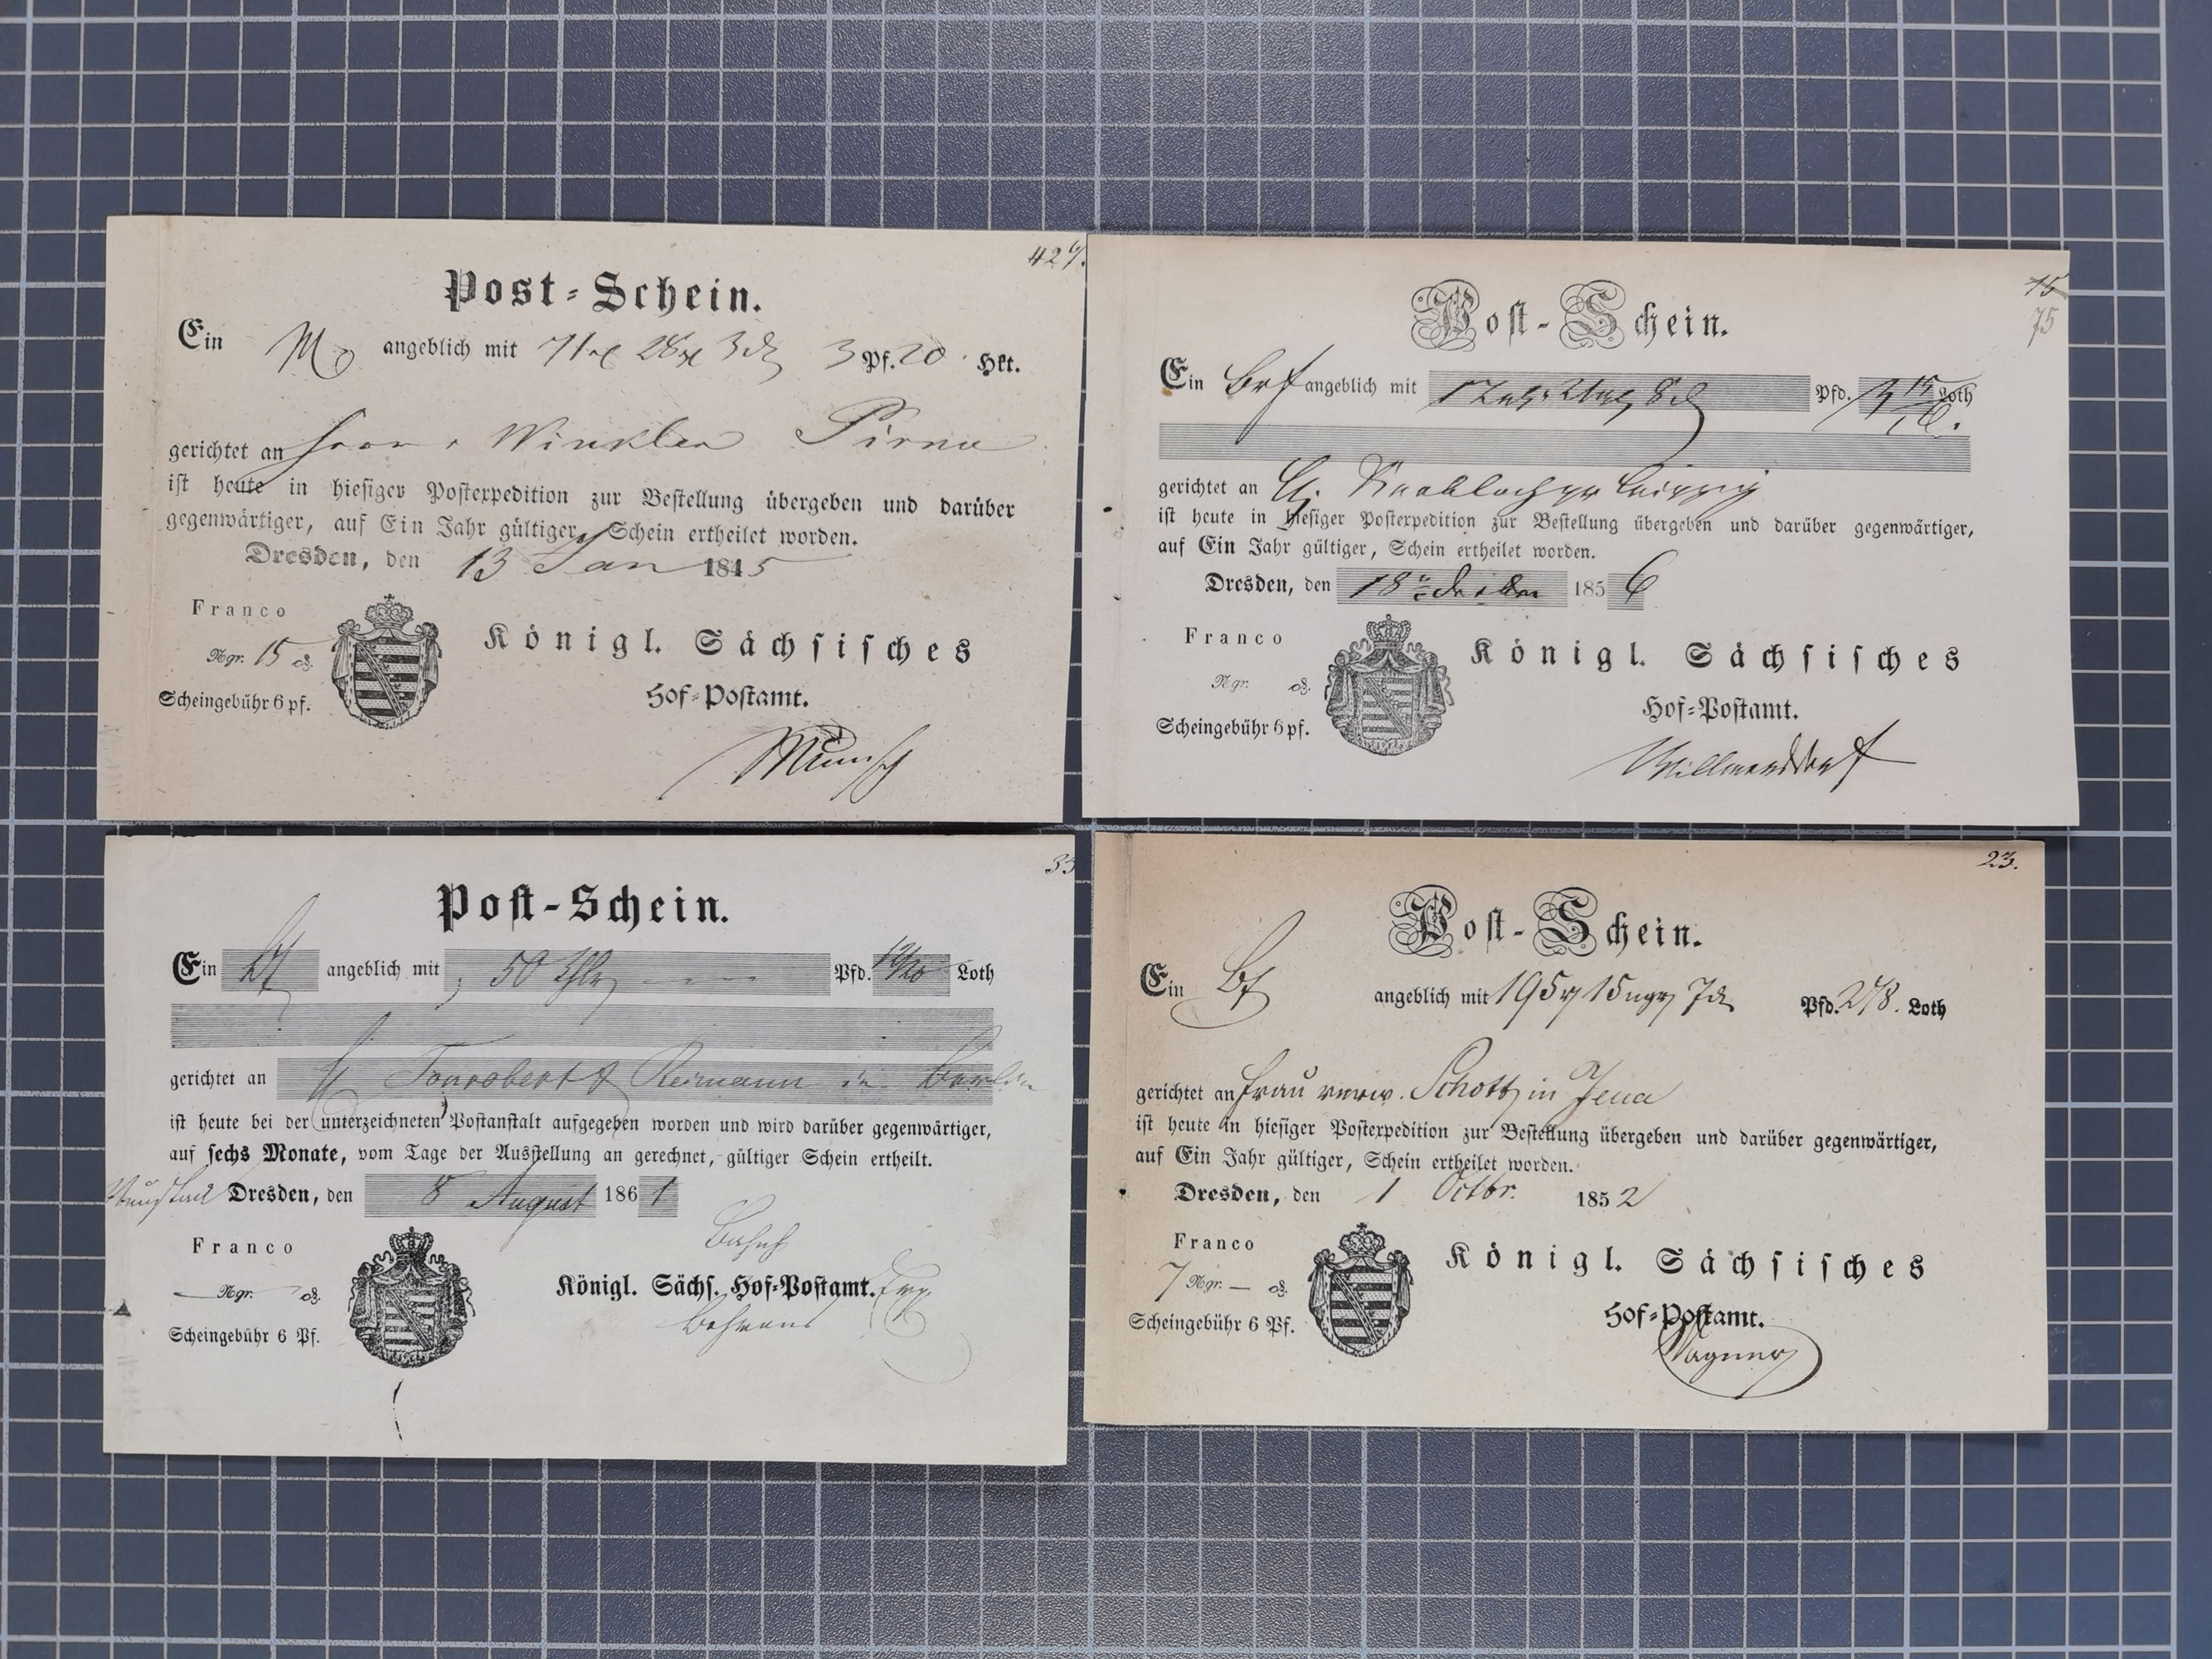 Post-Schein.
Ein angeblich mit 3 Pf. 20 Hkt.
gerichtet an Herr Winkler Pirna
ist heute in hiesiger Postexpedition zur Bestellung übergeben und darüber
gegenwärtiger, auf Ein Jahr gültiger, Schein ertheilet worden.
Dresden, den 13 Jan 1845
Franco
Ngr. 15 ₰.
Scheingebühr 6 pf.
Königl. Sächsisches
Hof-Postamt.
15
75
Post-Schein.
Ein Brf angeblich mit Pfd. Loth
gerichtet an Leipzig
ist heute in hiesiger Postexpedition zur Bestellung übergeben und darüber gegenwärtiger,
auf Ein Jahr gültiger, Schein ertheilet worden.
Dresden, den 18 1856
Franco
Ngr. ₰.
Scheingebühr 6 pf.
Königl. Sächsisches
Hof-Postamt.
33
Post-Schein.
Ein Bf angeblich mit 50 Thlr Pfd. Loth
gerichtet an Tonrobert & Reimann in Berlin
ist heute bei der unterzeichneten Postanstalt aufgegeben worden und wird darüber gegenwärtiger,
auf sechs Monate, vom Tage der Ausstellung an gerechnet, gültiger Schein ertheilt.
Neustadt Dresden, den 8 August 1861
Franco
Ngr. ₰.
Scheingebühr 6 Pf.
Königl. Sächs. Hof-Postamt. Exp.
Behrens
23.
Post-Schein.
Ein Bf angeblich mit 195 15 ngr 7 Pfd. 27/8. Loth
gerichtet an Frau verw. Schott in Jena
ist heute in hiesiger Postexpedition zur Bestellung übergeben und darüber gegenwärtiger,
auf Ein Jahr gültiger, Schein ertheilet worden.
Dresden, den 1 Octbr. 1852
Franco
7 Ngr. — ₰.
Scheingebühr 6 Pf.
Königl. Sächsisches
Hof-Postamt.
Wagner